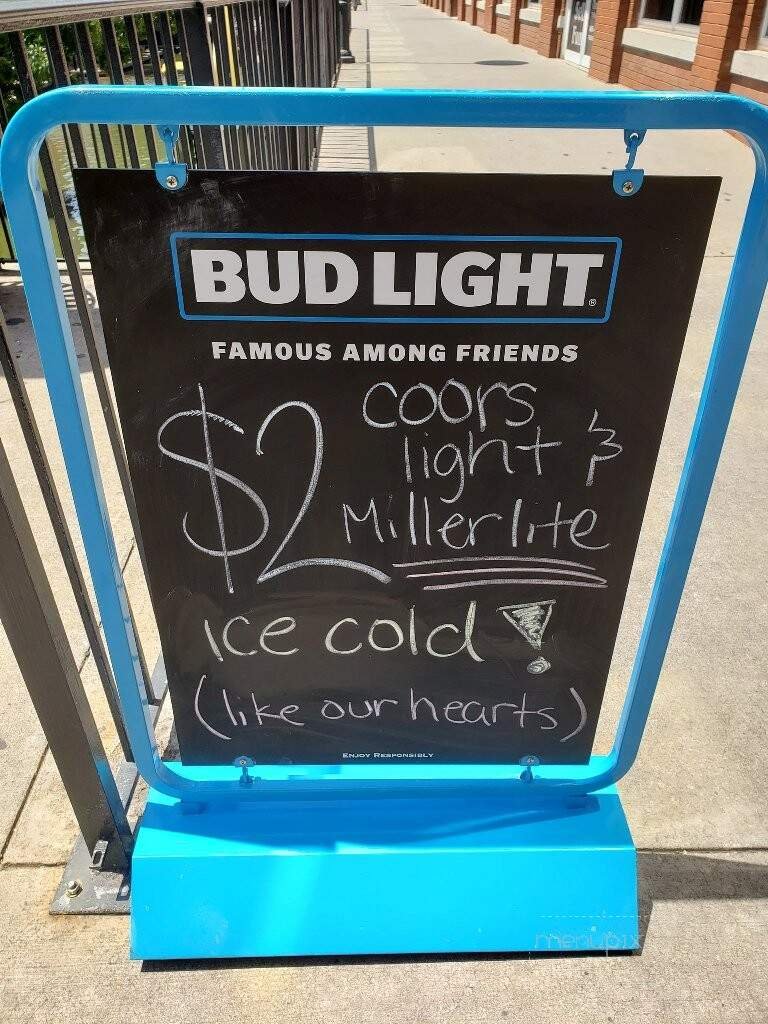 BUD LIGHT®
FAMOUS AMONG FRIENDS
$2 coors
light &
Miller lite
ice cold!
(like our hearts)
ENJOY RESPONSIBLY
menupix